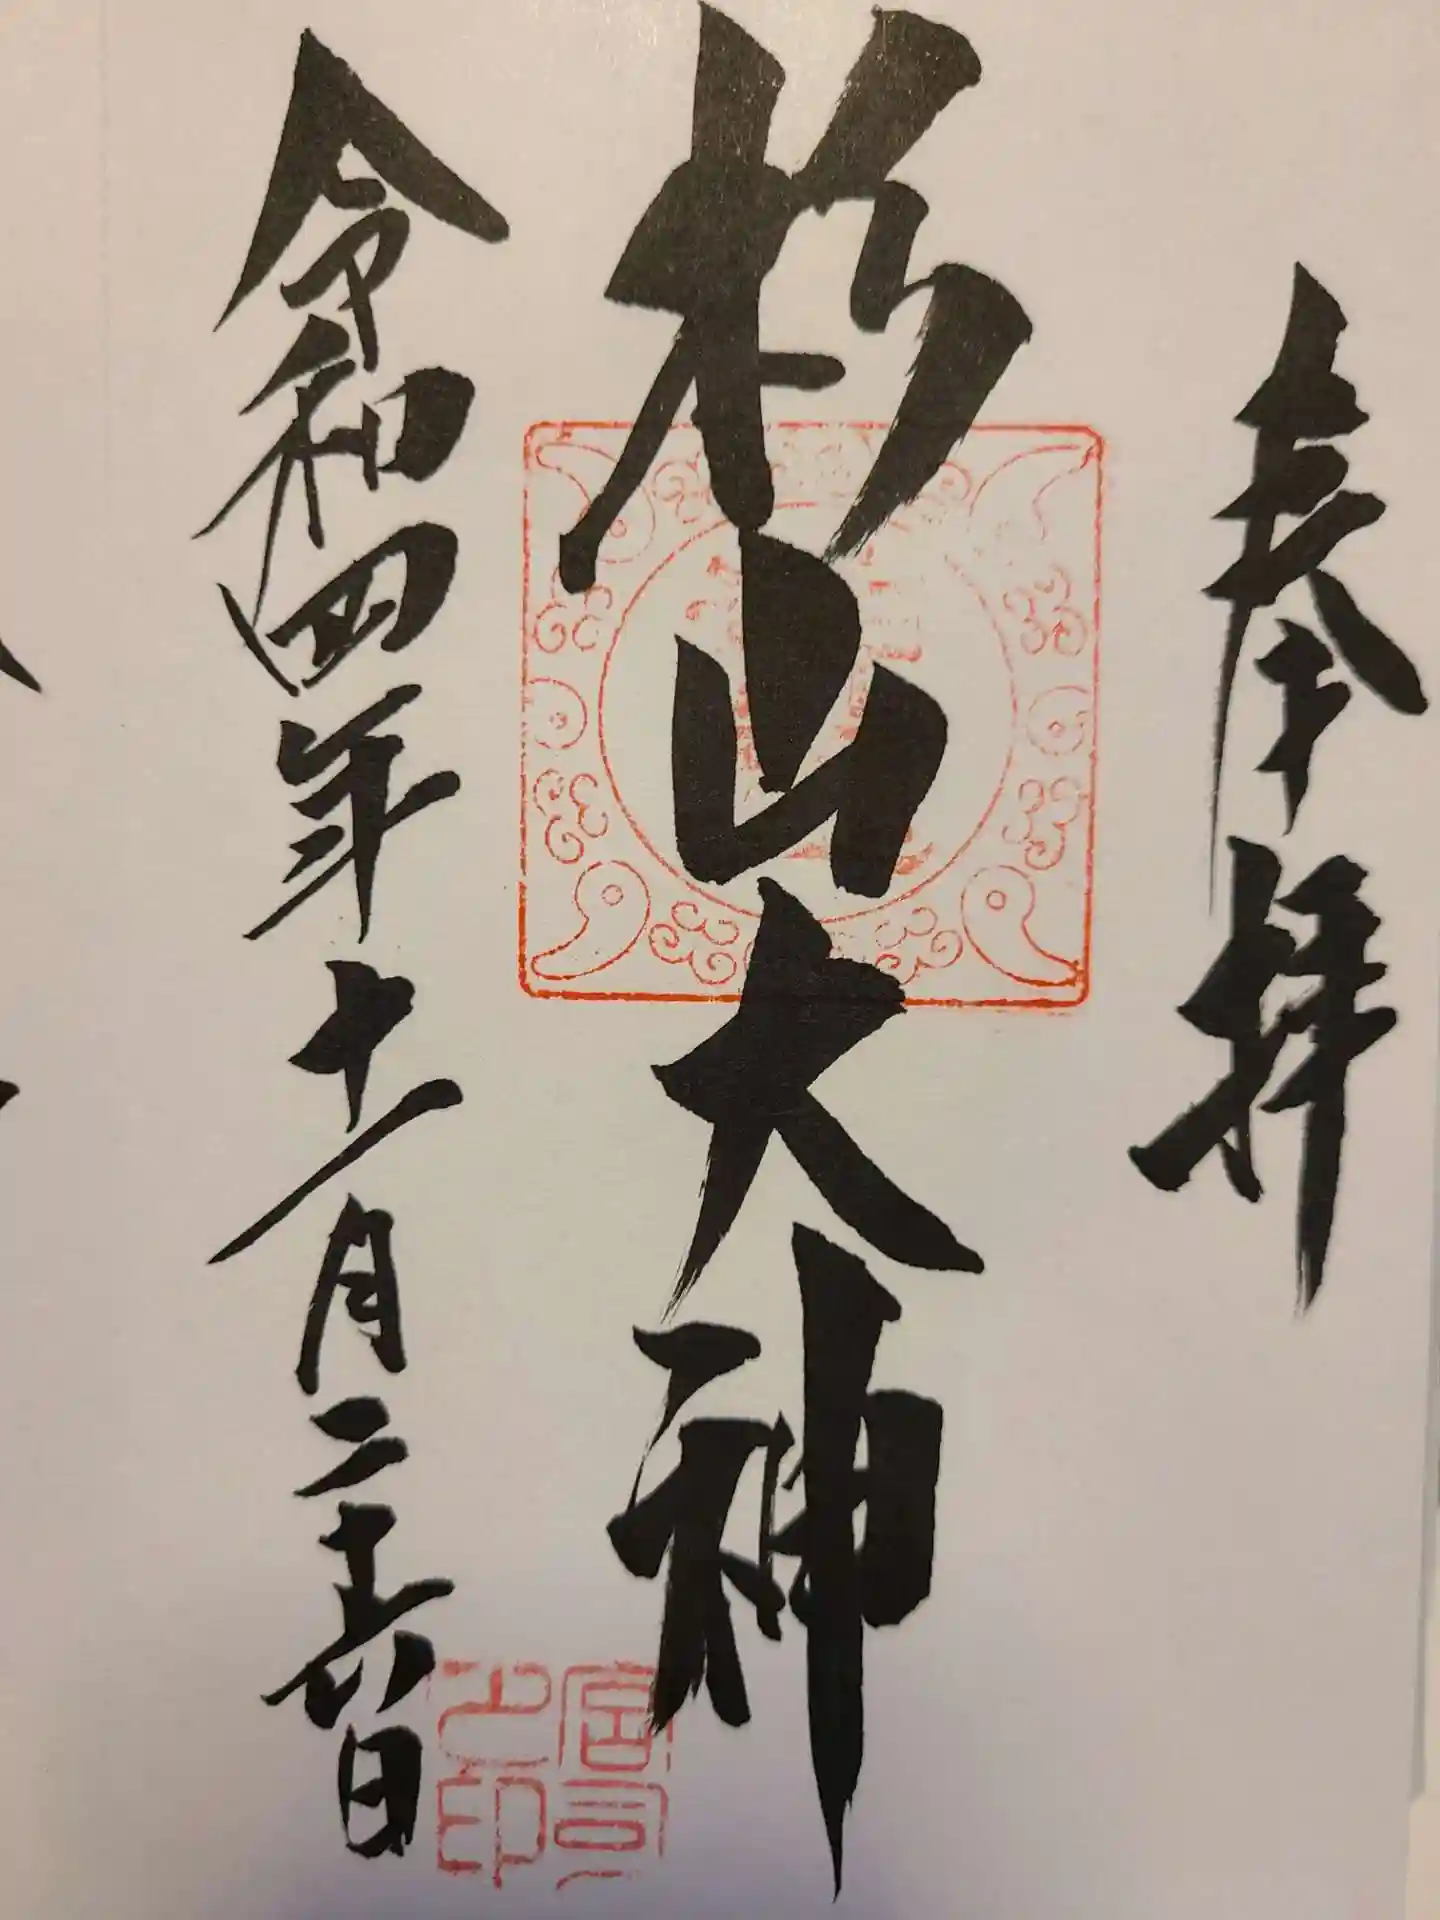 奉拝
杉山大神
令和四年十一月二十六日
宮司
之印